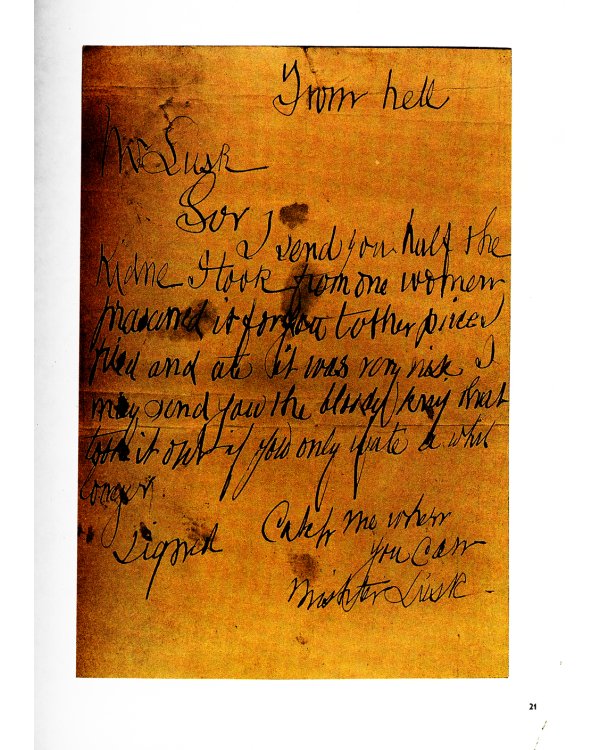 From hell
Mr Lusk
Sor
I send you half the
Kidne I took from one women
prasarved it for you tother piece I
fried and ate it was very nise I
may send you the bloody knif that
took it out if you only wate a whil
longer.
signed Catch me when
you Can
Mishter Lusk
21